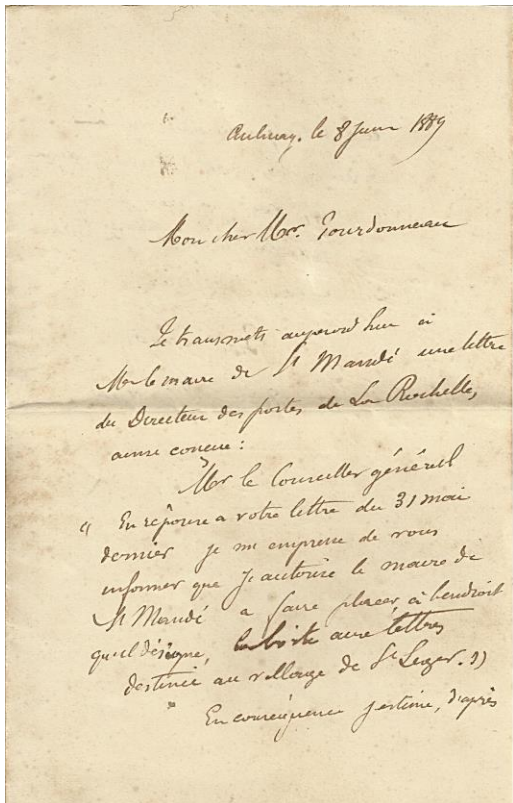 Aulnay, le 8 Juin 1889
Mon cher Mr. Gourdonneau
Je transmets aujourd'hui à
Mr le maire de St Mandé une lettre
du Directeur des postes de La Rochelle,
ainsi concue :
Mr le Conseiller général
" En réponse a votre lettre du 31 mai
dernier je m'empresse de vous
informer que j'autorise le maire de
St Mandé a faire placer, à l'endroit
qu'il désigne, la boîte aux lettres
destinée au village de St Leger. "
En conséquence j'estime, d'après